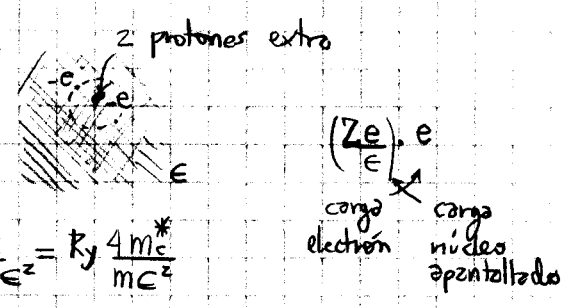 2 protones extra
-e
-e
ϵ
(Ze/ϵ) · e
carga electrón
carga núcleo apantallado
ϵ² = Ry 4m*c/mϵ²